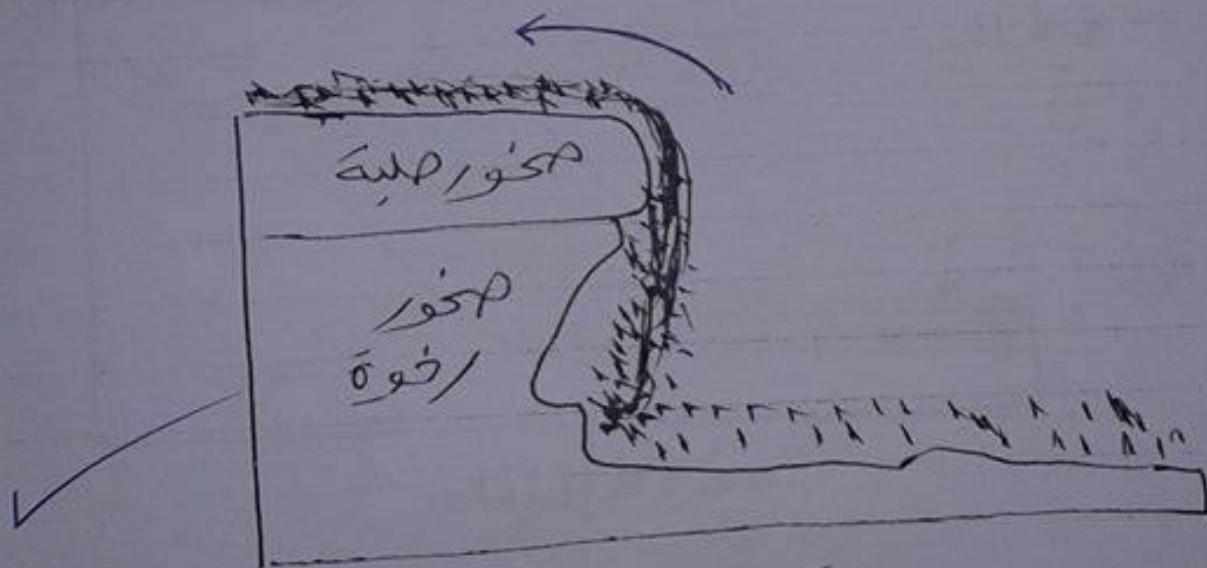 صخور صلبة
صخور
رخوة